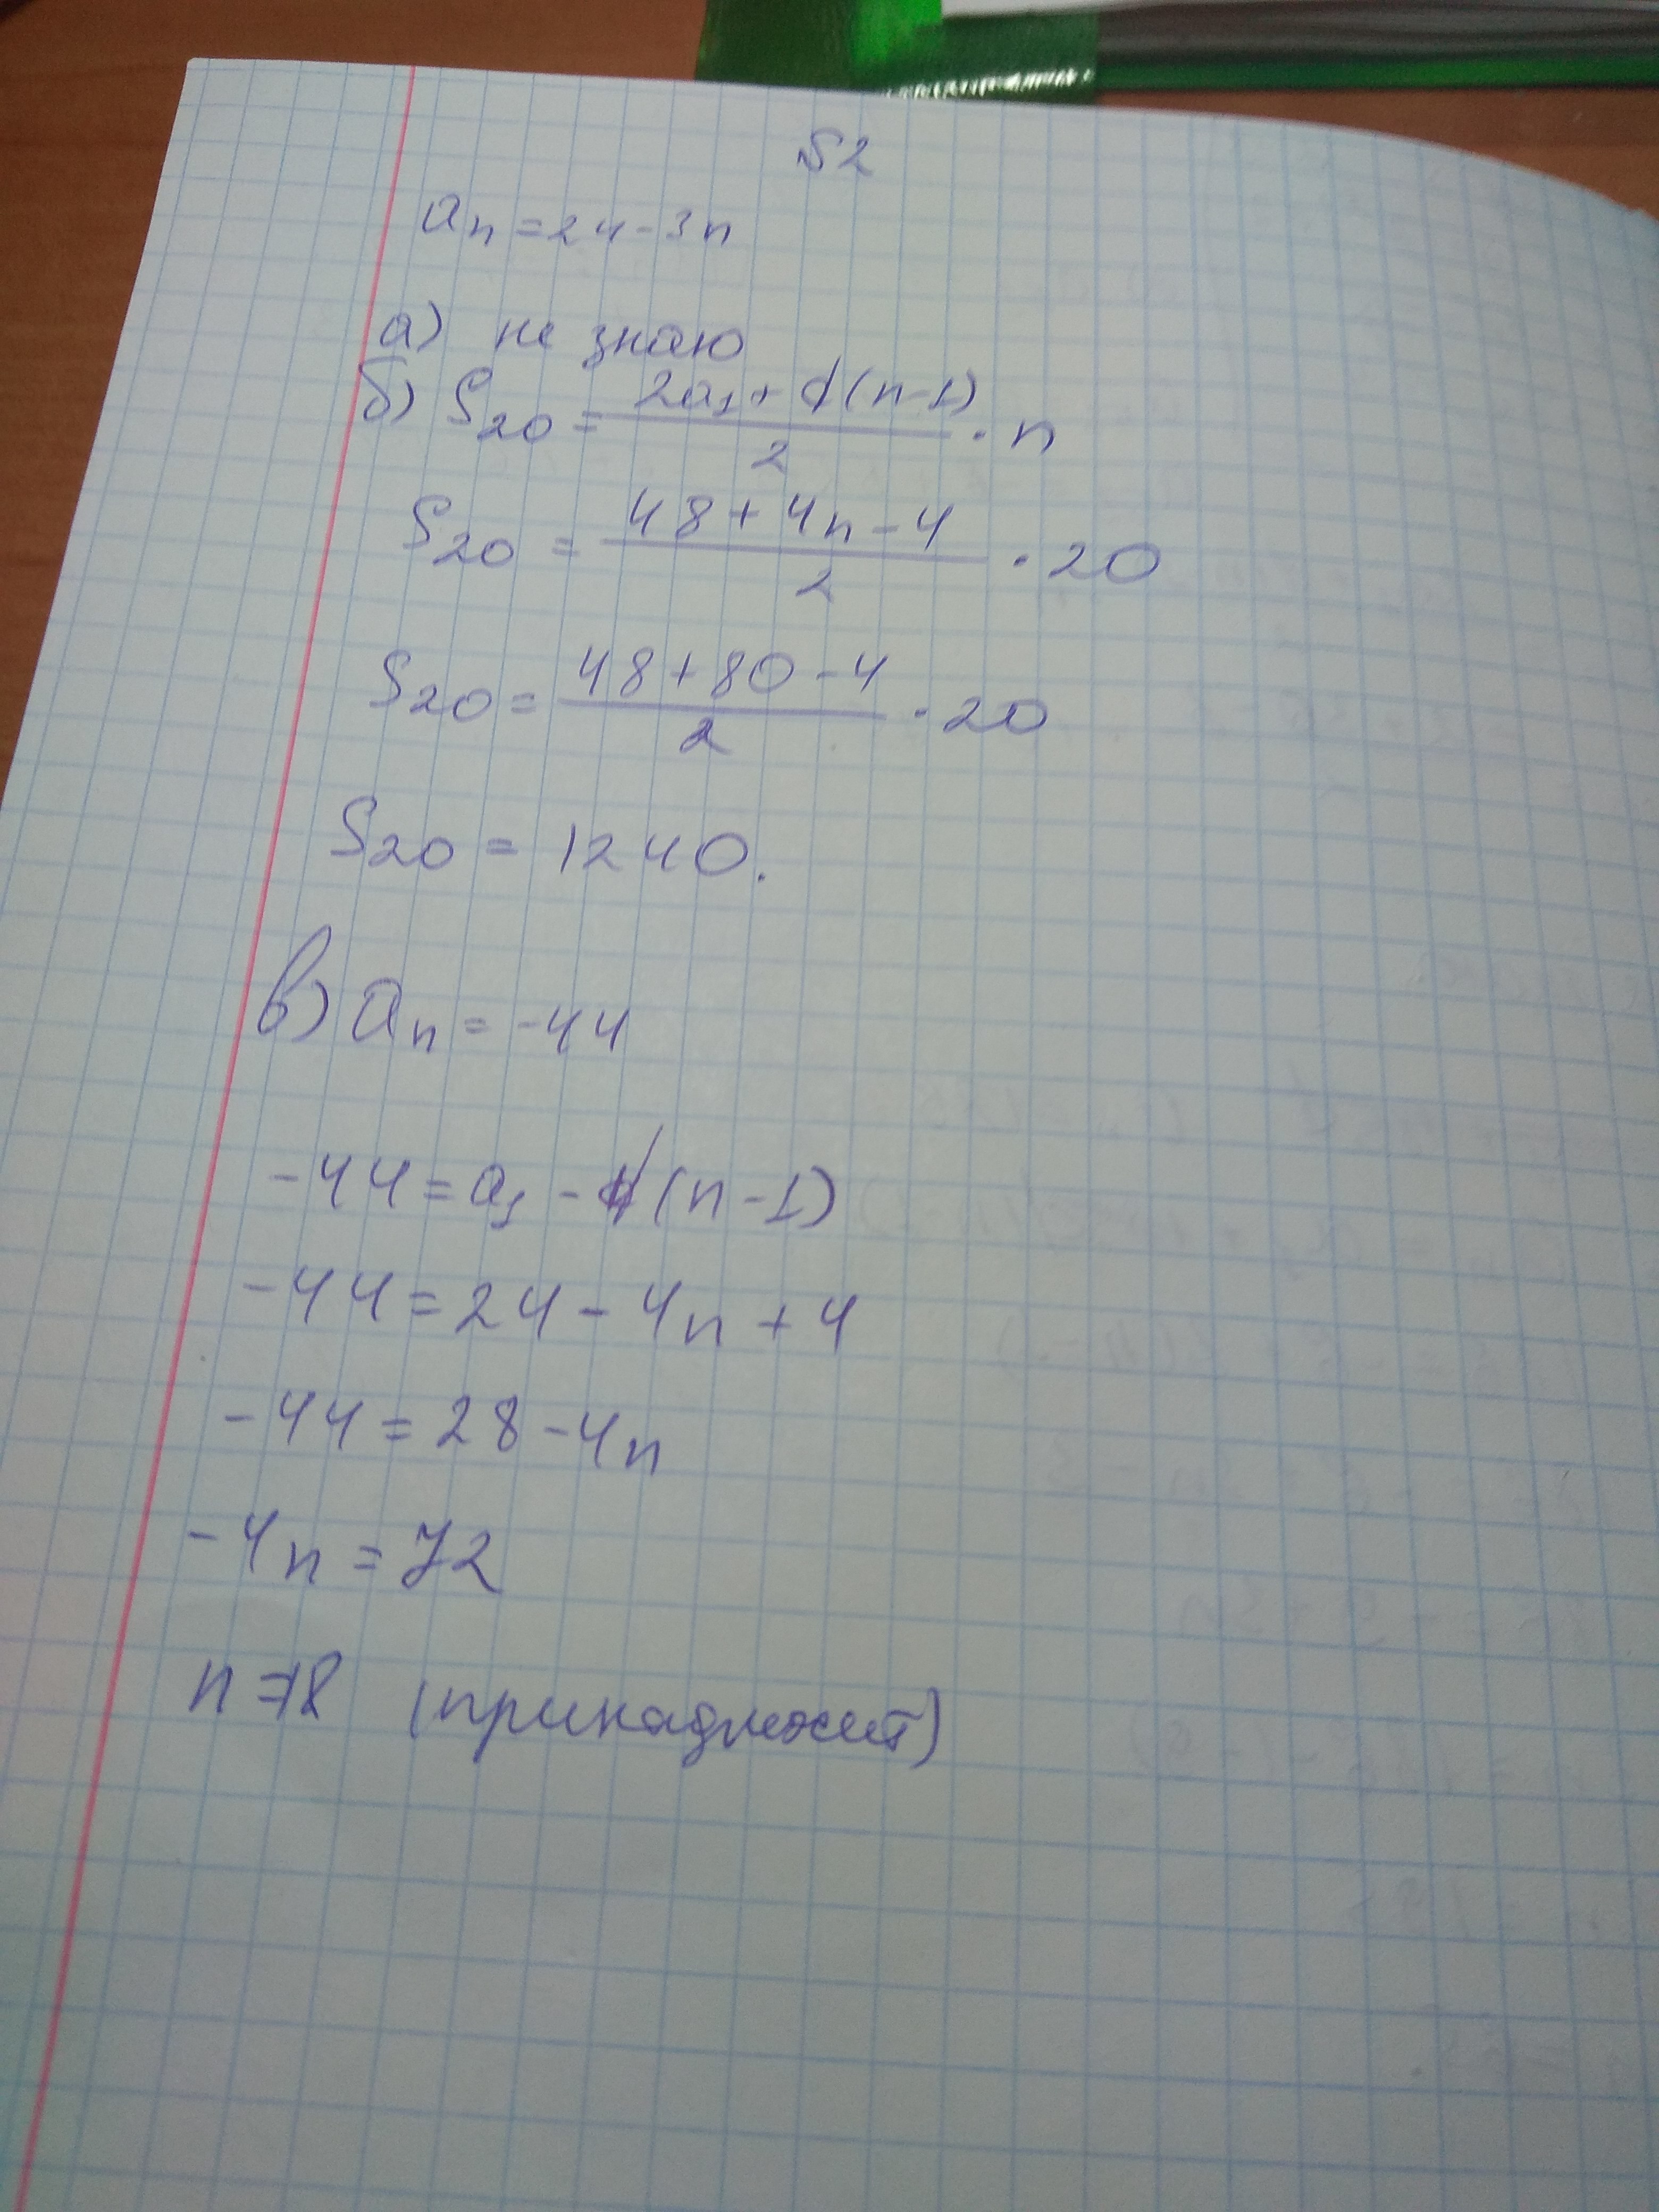 №2
aₙ = 24 - 3n
а) не знаю
б) S₂₀ = (2a₁ + d(n-1))/2 · n
S₂₀ = (48 + 4n - 4)/2 · 20
S₂₀ = (48 + 80 - 4)/2 · 20
S₂₀ = 1240.
в) aₙ = -44
-44 = a₁ - d(n-1)
-44 = 24 - 4n + 4
-44 = 28 - 4n
-4n = 72
n = 18 (принадлежит)